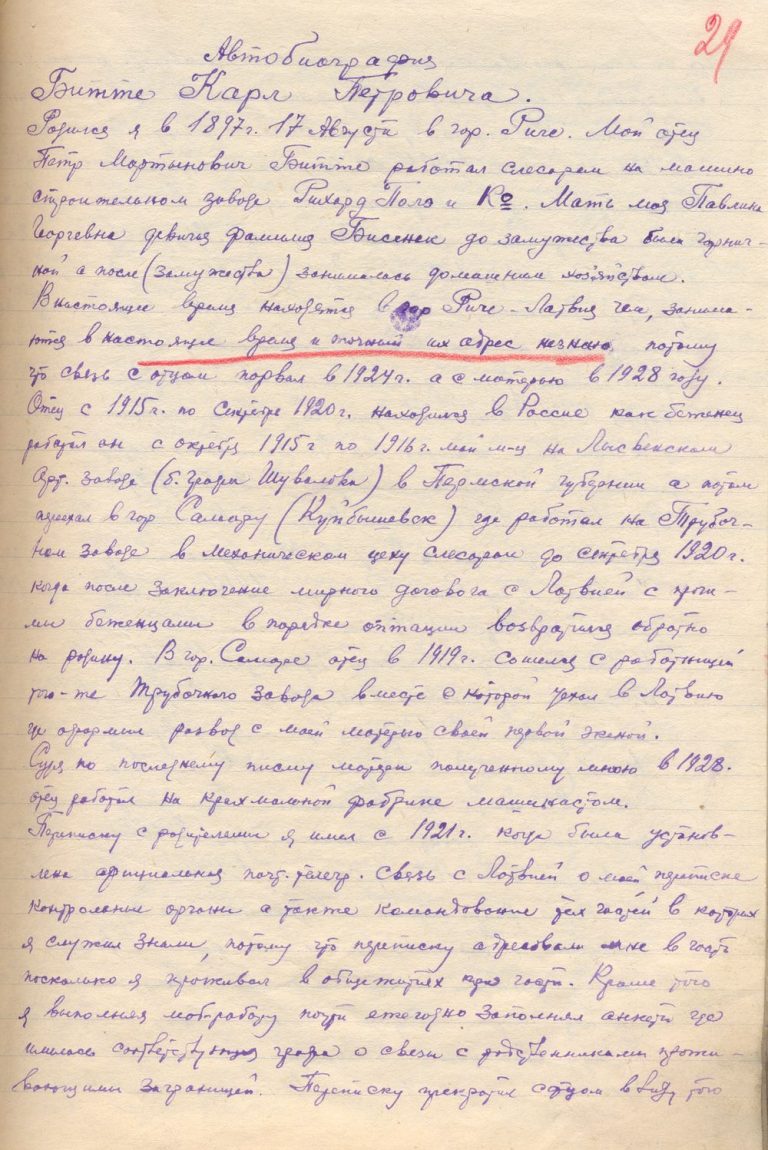 29
Автобиография
Битте Карл Петровича.
Родился я в 1897г. 17 Августа в гор. Риге. Мой отец
Петр Мартынович Битте работал слесарем на машино
строительном заводе Рихард Поле и Ко. Мать моя Павлина
Георгевна девичья фамилия Бисенек до замужества была горнич-
ной а после (замужества) занималась домашним хозяйством.
В настоящее время находятся в гор Риге – Латвия чем, занима-
ются в настоящее время и точный их адрес незнаю, потому
что связь с отцом порвал в 1924г. а с матерью в 1928 году.
Отец с 1915г. по Сентябре 1920г. находился в России как беженец
работал он с октября 1915г по 1916г. май м-ц на Лысвенском
Арт. заводе (б. графа Шувалова) в Пермской губернии а потом
переехал в гор Самару (Куйбышевск) где работал на Трубоч-
ном заводе в механическом цеху слесарем до сентября 1920г.
когда после заключение мирного договора с Латвией с прочи-
ми беженцами в порядке оптации возвратился обратно
на родину. В гор. Самаре отец в 1919г. сошелся с работницей
того-же Трубочного завода вместе с которой уехал в Латвию
где оформил развод с моей матерью своей первой женой.
Судя по последнему письму матери полученному мною в 1928.
отец работал на крахмальной фабрике машинистом.
Переписку с родителями я имел с 1921г. когда была установ-
лена официальная почт. телегр. связь с Латвией о моей переписке
контрольные органы а также командование тех частей в которых
я служил знали, потому что переписку адресовали мне в часть
поскольку я проживал в общежитиях при части. Кроме того
я выполняя моб-работу почти ежегодно заполнял анкеты где
имелась соответствующая графа о связи с родственниками прожи-
вающими заграницей. Переписку прекратил с отцом ввиду того